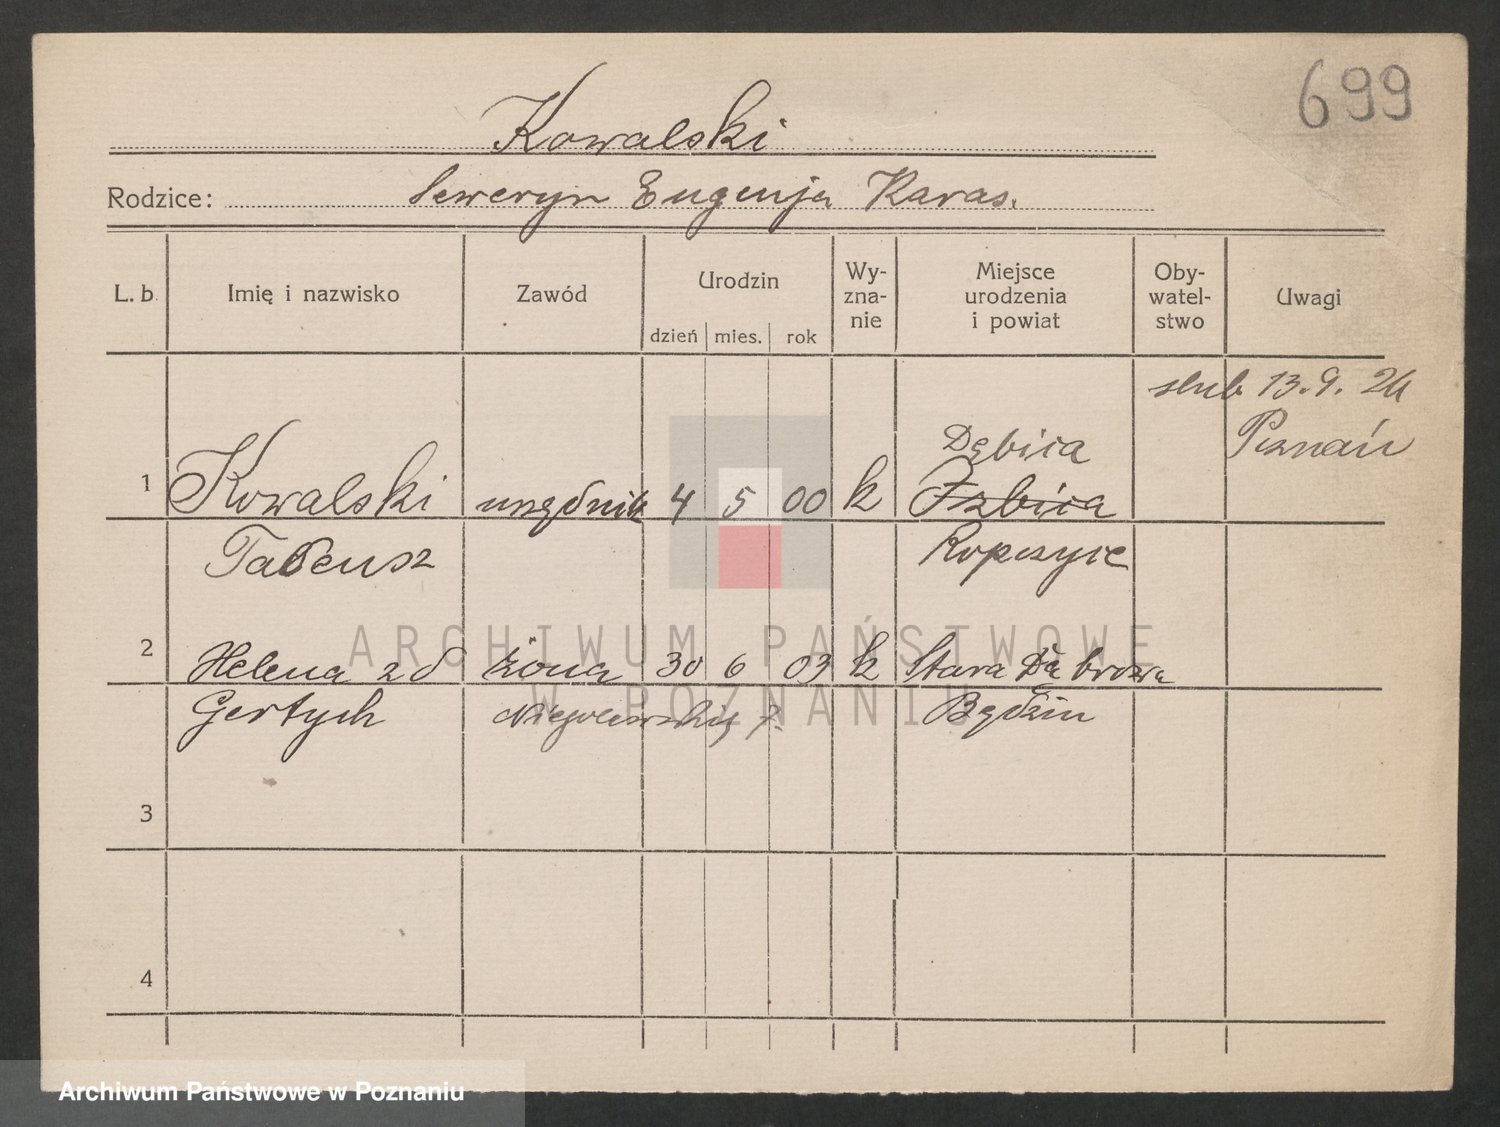 699
Kowalski
Rodzice: Seweryn Eugenja Karas.
L. b. Imię i nazwisko Zawód Urodzin Wy-zna-nie Miejsce urodzenia i powiat Oby-watel-stwo Uwagi
dzień mies. rok
ślub 13.9.24
Poznań
Dębica
1 Kowalski urzędnik 4 5 00 k Izbica
Tadeusz Ropczyce
2 Helena zd żona 30 6 03 k Stara Dąbrowa
Gertych Niegolewskich 7. Będzin
3
4
ARCHIWUM PAŃSTWOWE
W POZNANIU
Archiwum Państwowe w Poznaniu